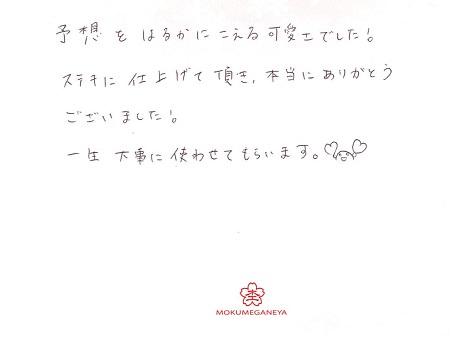 予想をはるかにこえる可愛さでした!
ステキに仕上げて頂き、本当にありがとう
ございました!
一生大事に使わせてもらいます。
MOKUMEGANEYA